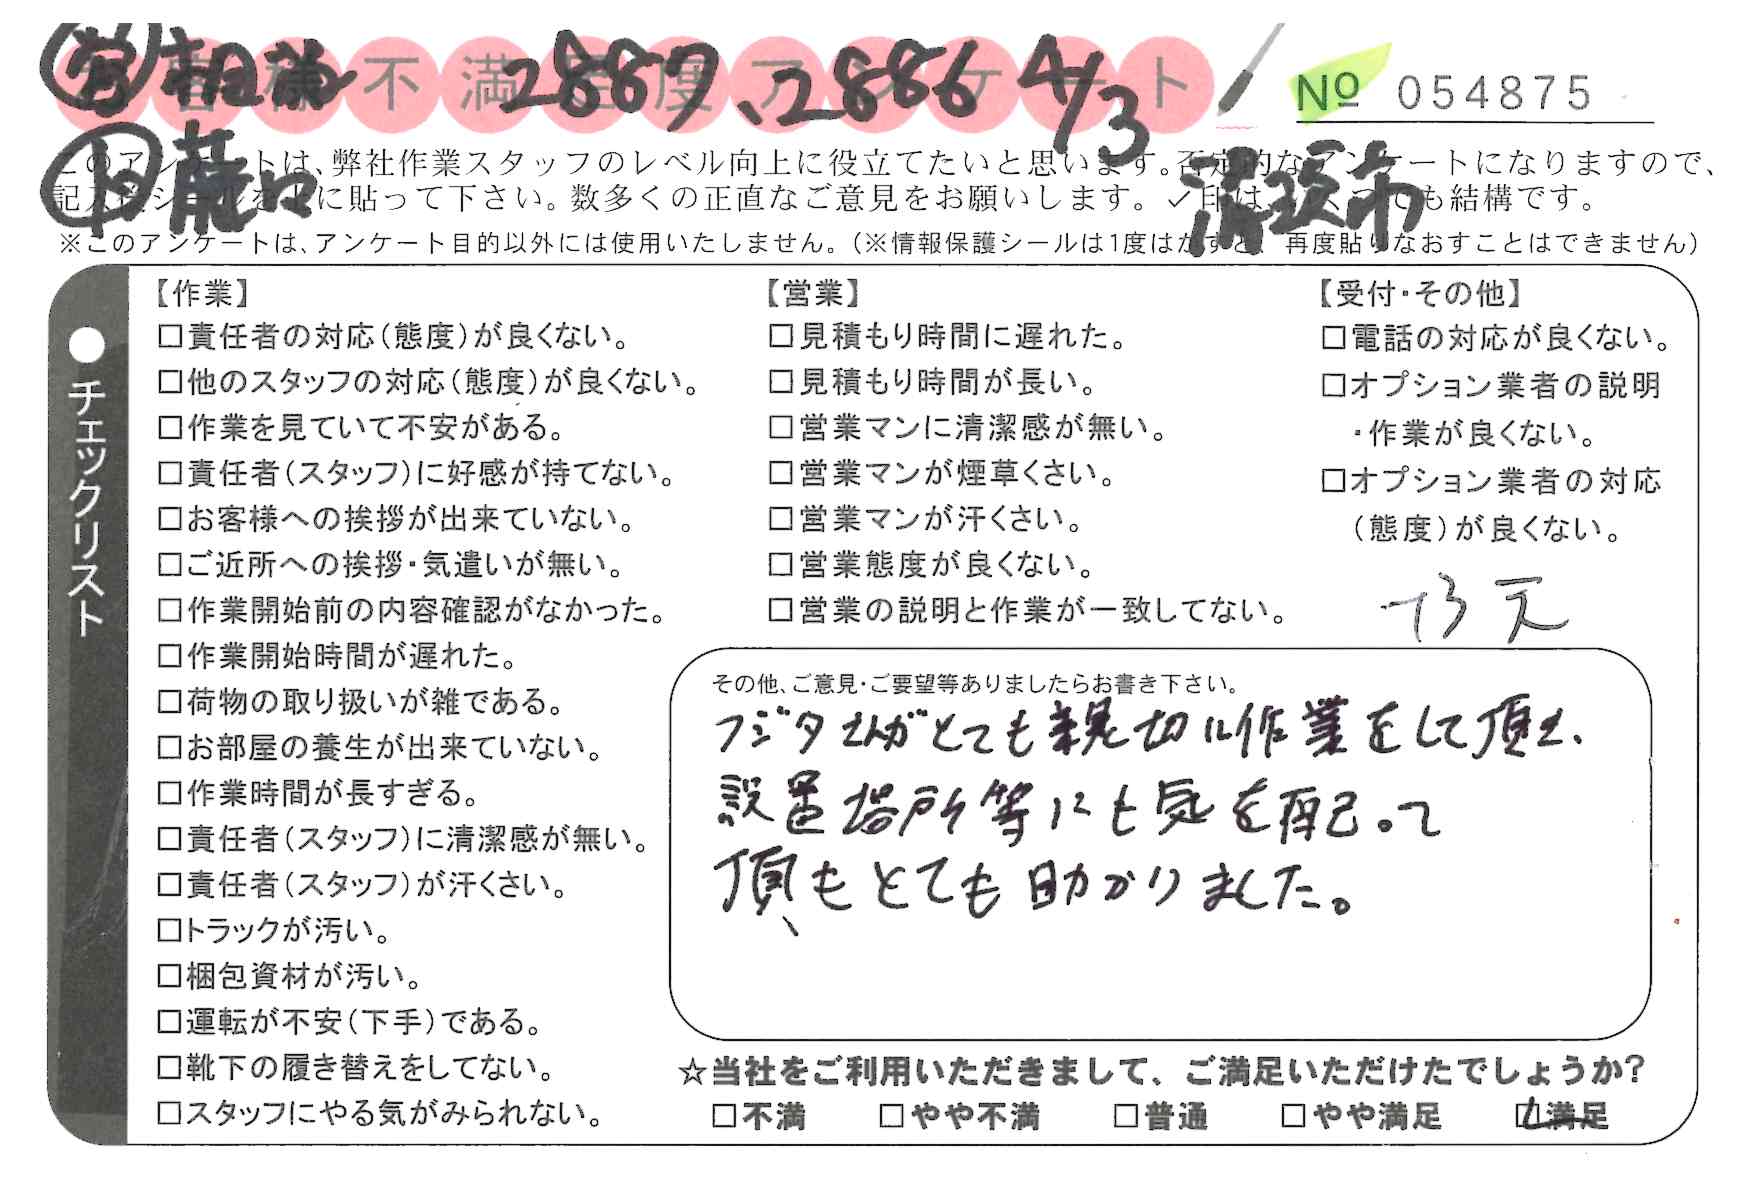 お客様不満足度アンケート
2887、2886 4/3
№ 054875
このアンケートは、弊社作業スタッフのレベル向上に役立てたいと思います。否定的なアンケートになりますので、
記入後シールを上に貼って下さい。数多くの正直なご意見をお願いします。✓印は、いくつでも結構です。
※このアンケートは、アンケート目的以外には使用いたしません。(※情報保護シールは1度はがすと、再度貼りなおすことはできません)
●チェックリスト
【作業】
□責任者の対応(態度)が良くない。
□他のスタッフの対応(態度)が良くない。
□作業を見ていて不安がある。
□責任者(スタッフ)に好感が持てない。
□お客様への挨拶が出来ていない。
□ご近所への挨拶・気遣いが無い。
□作業開始前の内容確認がなかった。
□作業開始時間が遅れた。
□荷物の取り扱いが雑である。
□お部屋の養生が出来ていない。
□作業時間が長すぎる。
□責任者(スタッフ)に清潔感が無い。
□責任者(スタッフ)が汗くさい。
□トラックが汚い。
□梱包資材が汚い。
□運転が不安(下手)である。
□靴下の履き替えをしてない。
□スタッフにやる気がみられない。
【営業】
□見積もり時間に遅れた。
□見積もり時間が長い。
□営業マンに清潔感が無い。
□営業マンが煙草くさい。
□営業マンが汗くさい。
□営業態度が良くない。
□営業の説明と作業が一致してない。
【受付・その他】
□電話の対応が良くない。
□オプション業者の説明
・作業が良くない。
□オプション業者の対応
(態度)が良くない。
その他、ご意見・ご要望等ありましたらお書き下さい。
フジタさんがとても親切に作業をして頂き、
設置場所等にも気を配って
頂きとても助かりました。
☆当社をご利用いただきまして、ご満足いただけたでしょうか?
□不満 □やや不満 □普通 □やや満足 ☑満足